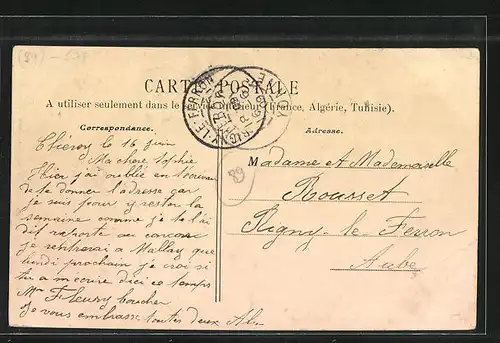 CARTE POSTALE
A utiliser seulement dans le Service Intérieur (France, Algérie, Tunisie).
Correspondance.
Adresse.
16 juin
Ma chere Sophie
Hier j'ai oublié en
de te donner l'adresse car
je suis pour y rester la
semaine comme je te l'ai
dit
je rentrerai a que
lundi prochain je croi si
tu a m'ecrire dici ce temps
Mme Fleury boucher
Je vous embrasse toutes deux
Madame et Mademoiselle
Rousset
Rigny-le-Ferron
Aube
89